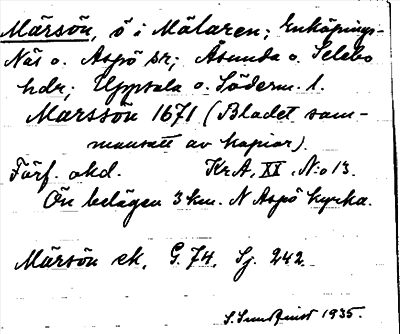 Märsön, ö i Mälaren; Enköpings-
Näs o. Aspö sr; Åsunda o. Selebo
hdr; Uppsala o. Söderm. l.
Marssön 1671 (Bladet sam-
mansatt av kopior).
Förf. okd. Kr.A. XX. N:o 13.
Ön belägen 3 km. N Aspö kyrka.
Märsön ek. G. 74. Sj. 242.
S. Sundqvist 1935.